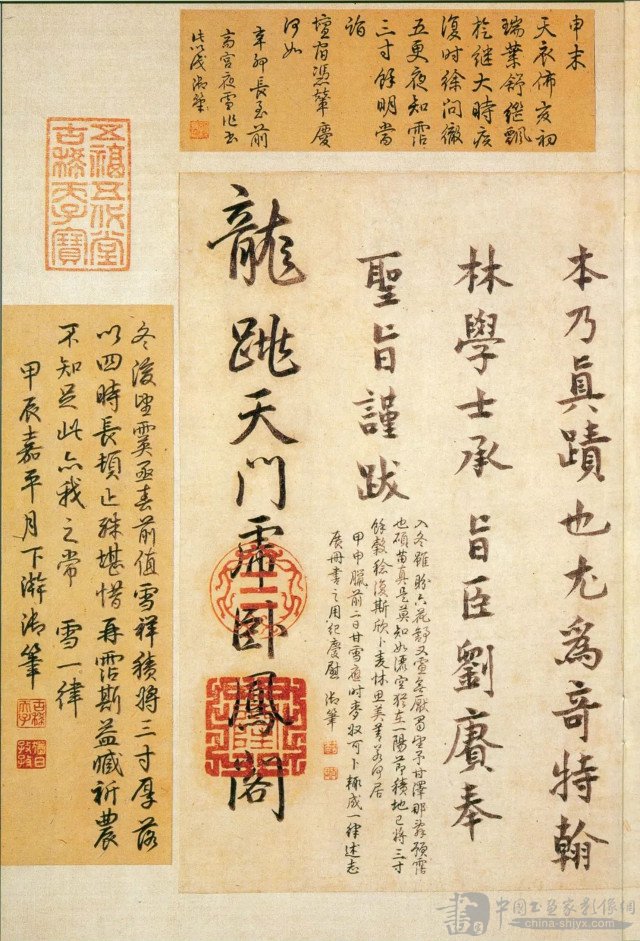 申末
天衣佈亥初
瑞葉舒繼飄
於繼大時疾
復時徐問徹
五更夜知霑
三寸餘明當
詣
壇宿憑輦慶
何如
辛卯長至前
宮夜雪作書
御筆
本乃真蹟也尤為奇特翰
林學士承旨臣劉賡奉
聖旨謹跋
入冬雖盼六花舒又望予甘澤那辭預霑
也碩苗真是莫知如空猶在一陽節積地已將三寸
餘斯欣卜麦休思美若何居
甲申臘前二日甘雪應時麥收可卜輒成一律述志
展冊書之用紀慶慰 御筆
龍跳天門虎臥鳳閣
五福五代堂
古稀天子寶
冬後望霙亟春前值雪祥積將三寸厚落
以四時長頓止殊堪惜再霑斯益臧祈農
不知足此亦我之常 雪一律
甲辰嘉平月下澣御筆
古稀天子
猶日孜孜
中国书画家影像网
china-shjyx.com